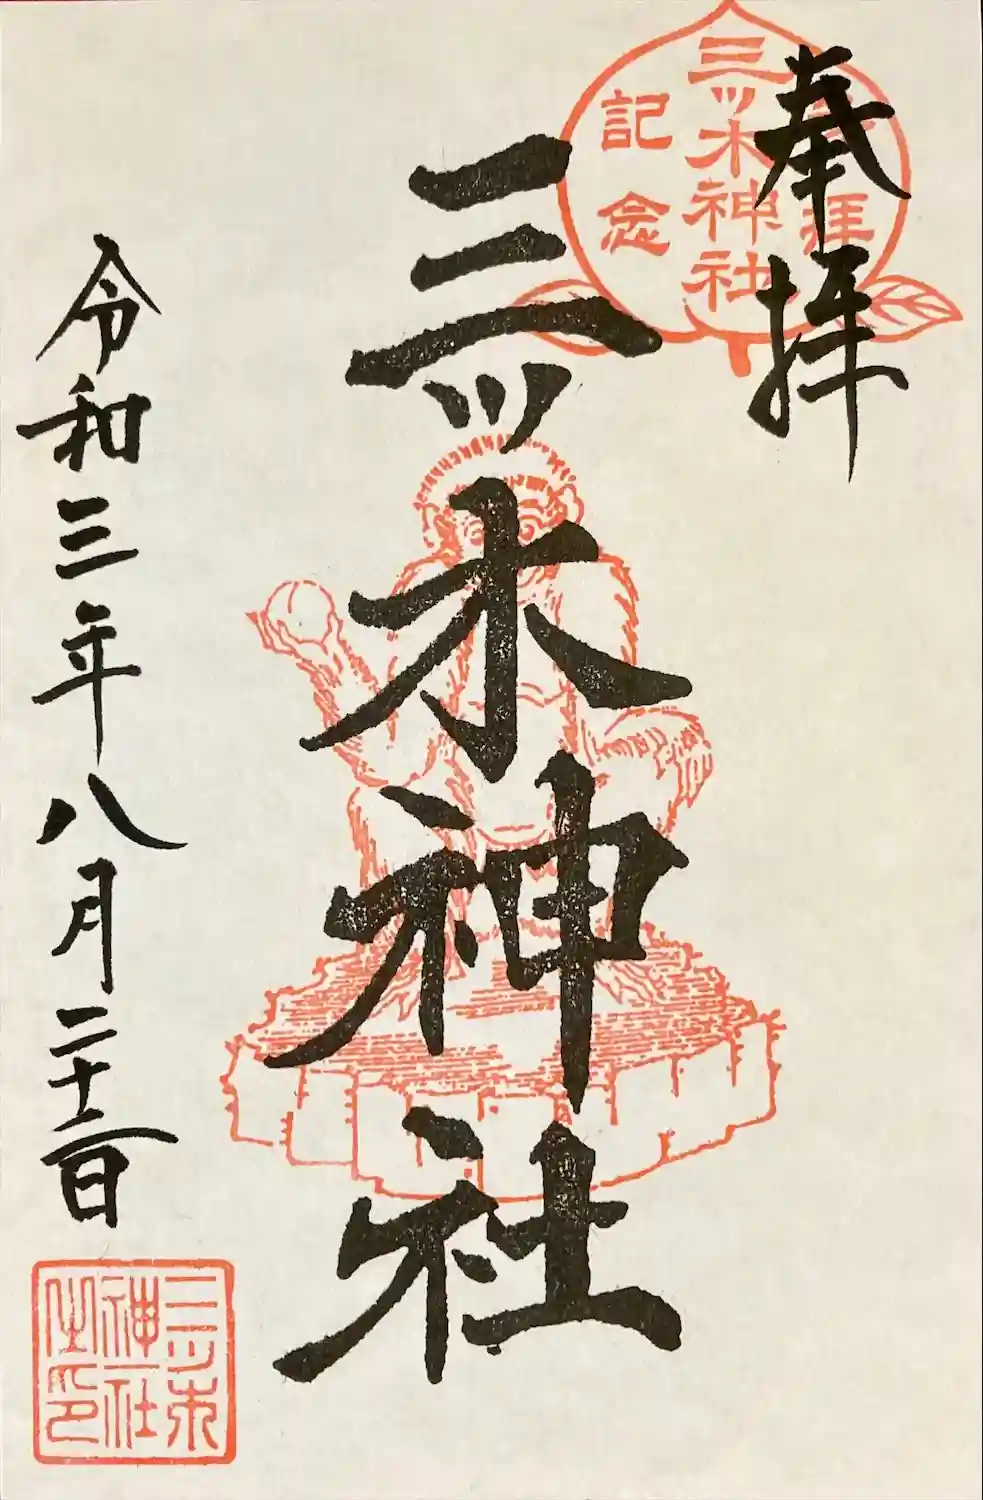 奉拝
参拝
三ツ木神社
記念
三ツ木神社
令和三年八月二十二日
三ツ木
神社
之印